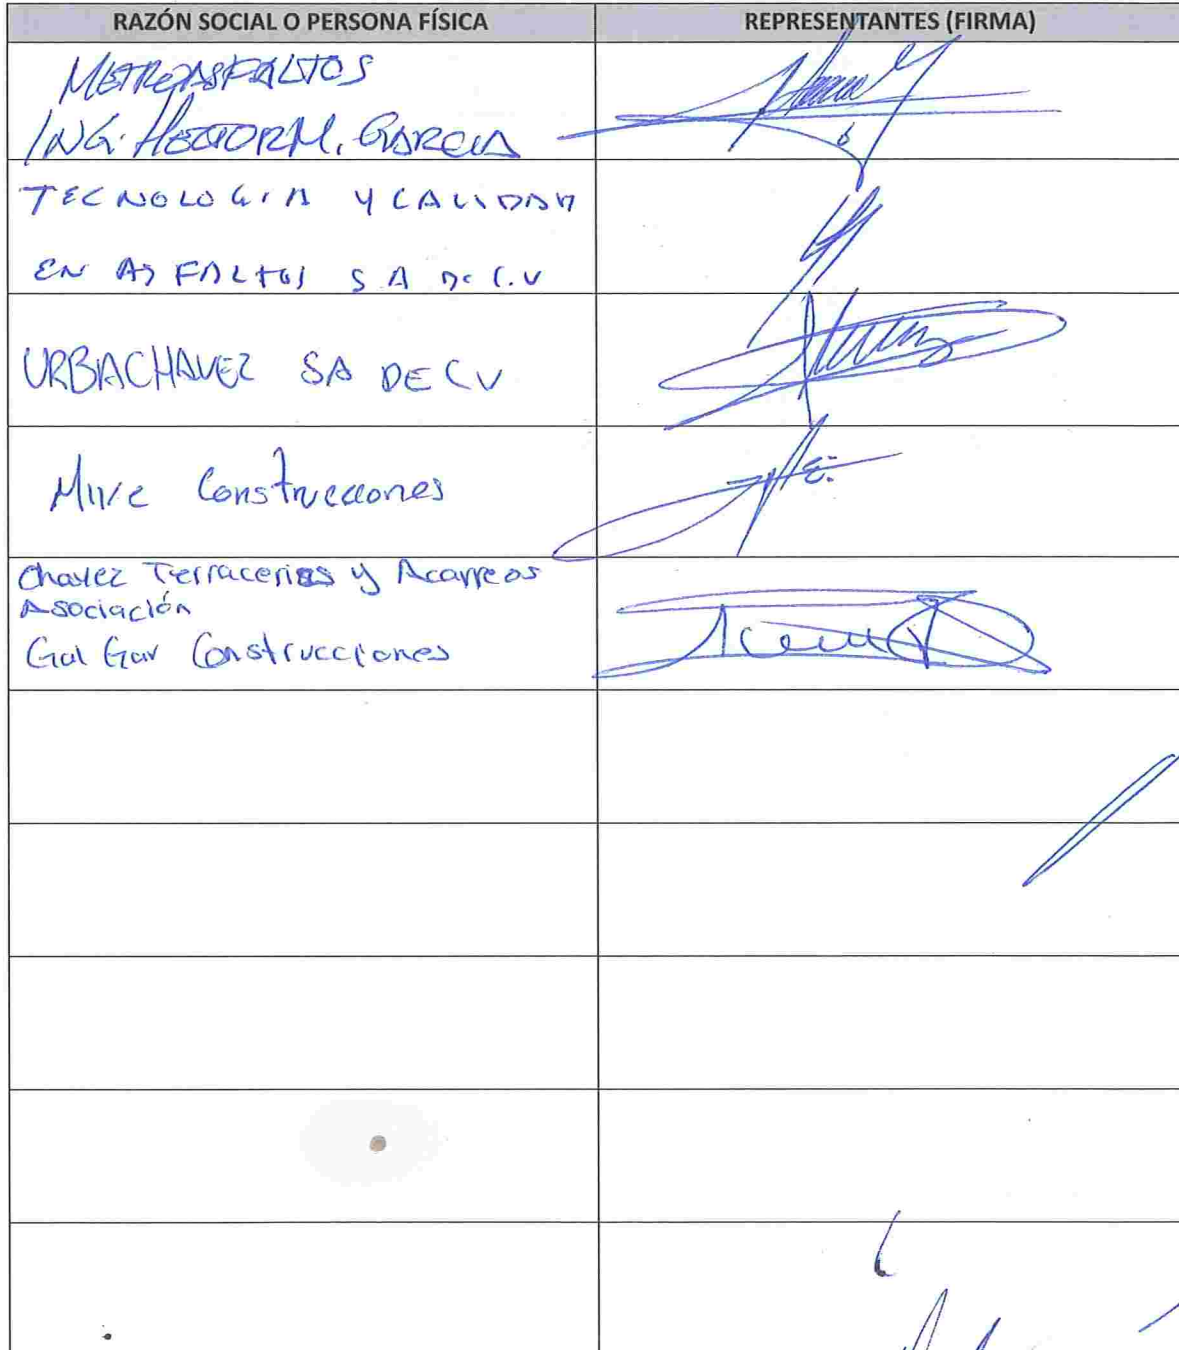 RAZÓN SOCIAL O PERSONA FÍSICA
REPRESENTANTES (FIRMA)
METROASFALTOS
ING. HECTOR M. GARCIA
TECNOLOGIA Y CALIDAD
EN ASFALTOS S A DE C.V
URBACHAVEZ SA DE CV
Construcciones
Chavez Terracerias y Acarreos
Asociación
Gal Gar Construcciones